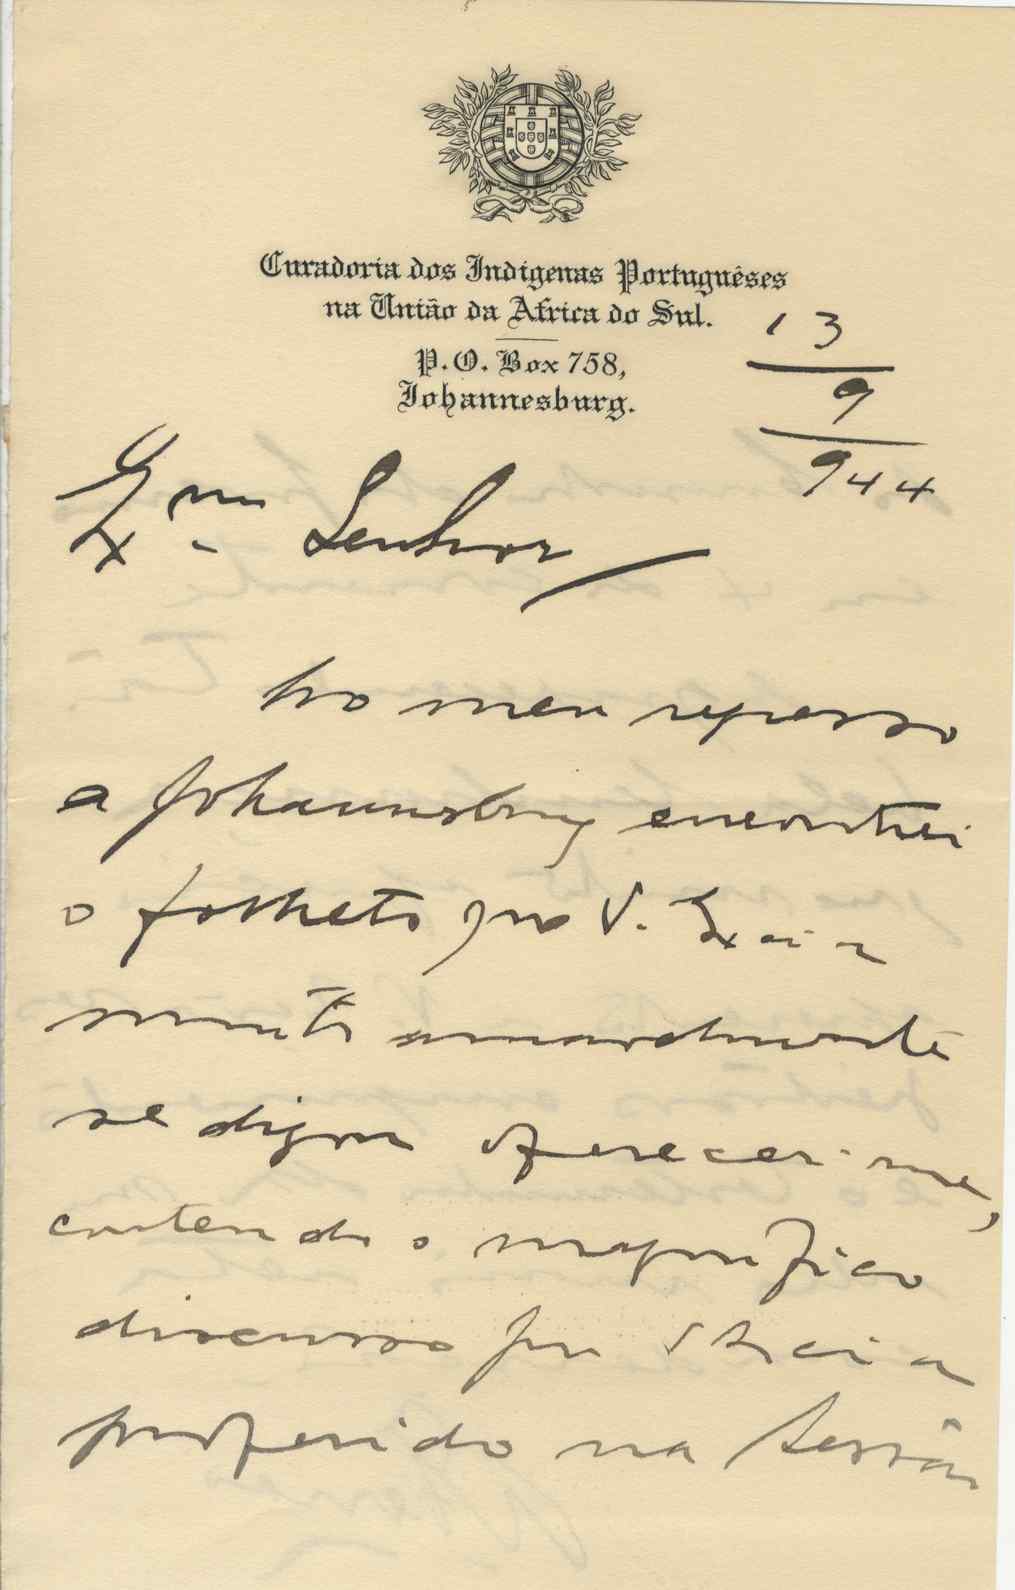 Curadoria dos Indigenas Portuguêses
na União da Africa do Sul.
P. O. Box 758,
Johannesburg.
13
9
944
Exmo. Senhor
No meu regresso
a Johannesburg encontrei
o folheto que V. Excia
muito amavelmente
se dignou oferecer-me,
contendo o magnifico
discurso por V. Excia
proferido na Sessão